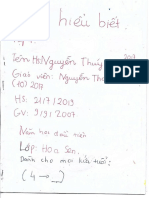 hiểu biết.
Tên HS: Nguyễn Thuỳ
Giáo viên: Nguyễn Tho
(10) 2017
HS: 21 7 2019
GV: 9 9 2007
Năm học
Lớp: Hoa Sen
Dành cho mọi lứa tuổi:
(4 →